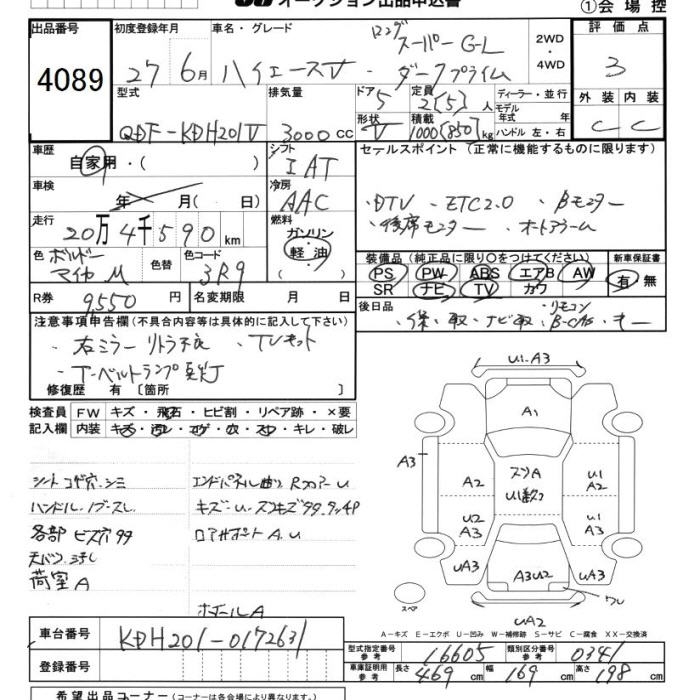 オークション出品申込書 ①会場控
出品番号 初度登録年月 車名・グレード 評価点
4089 27 6月 ハイエースV ロングスーパーGL ダークプライム 2WD・4WD 3
型式 排気量 ドア 定員 ディーラー・並行 外装 内装
QDF-KDH201V 3000cc 5 2(5)人 モデル年式 年
形状 V 積載 1000(850)kg ハンドル 左・右 C C
車歴 シフト セールスポイント (正常に機能するものに限ります)
自家用・( ) IAT
車検 冷房
年 月( 日) AAC ・DTV ・ETC2.0 ・Bモニター
走行 燃料 ・後席モニター ・オートアラーム
20万4千590km ガソリン
軽油
色 色替 色コード ( ) 装備品 (純正品に限り○をつけてください) 新車保証書
ボルドーマイカM 3R9 PS PW ABS エアB AW 有・無
SR ナビ TV カワ
R券 9,550円 名変期限 月 日 後日品
・保・取・ナビ取・B-CAS・リモコン・キー
注意事項申告欄 (不具合内容等は具体的に記入して下さい)
・右ミラーリトラ不良 ・TVキット
・T-ベルトランプ点灯
修復歴 有 〔箇所 〕
検査員 FW キズ・飛石・ヒビ割・リペア跡・×要
記入欄 内装 キズ・汚レ・コゲ・穴・スレ・キレ・破レ
シート コゲ穴、シミ エンドパネル曲り RフロアーU
ハンドル・ノブスレ キズ・U・スリキズ99、タッチP
各部ビス穴99 ロアサポートA、U
天バン ヨゴレ
荷室A
ホイールA
U1.A3
A1
A3 A2 スリA U1 A2
U1数ケ
U2 A3 U1 A3
UA3 A3U2 UA3
ワレ
スペア UA2
A-キズ E-エクボ U-凹み W-補修跡 S-サビ C-腐食 XX-交換済
車台番号 KDH201-0172631
登録番号
型式指定番号 参考 16605 類別区分番号 参考 0341
車庫証明用 参考 長さ 469cm 幅 169cm 高さ 198cm
希望出品コーナー (コーナーは各会場により異なります)